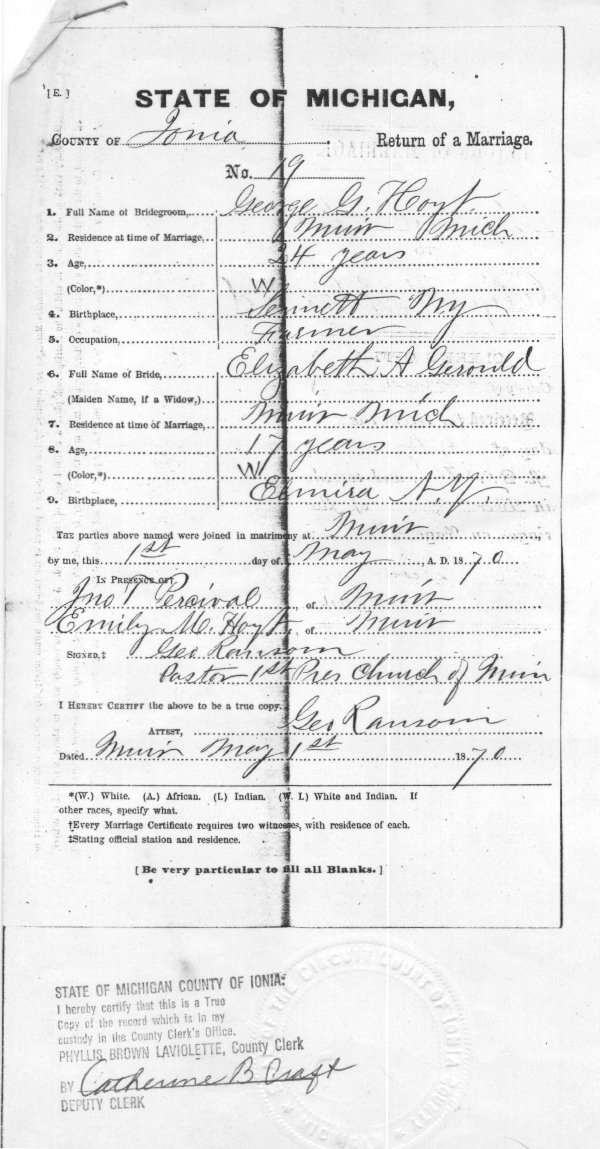 [E.]
STATE OF MICHIGAN,
COUNTY OF Ionia. Return of a Marriage.
No. 19
1. Full Name of Bridegroom, George G. Hoyt.
2. Residence at time of Marriage, Muir Mich
3. Age, 24 years
(Color,*) W
4. Birthplace, Sennett Ny
5. Occupation, Farmer
6. Full Name of Bride, Elizabeth A Gerould
(Maiden Name, if a Widow,)
7. Residence at time of Marriage, Muir Mich
8. Age, 17 years
(Color,*) W
9. Birthplace, Elmira N.Y.
THE parties above named were joined in matrimony at Muir
by me, this 1st day of May, A. D. 1870.
IN PRESENCE OF†
Jno Percival of Muir
Emily M. Hoyt, of Muir
SIGNED,‡ Geo Ransom
Pastor 1st Pres Church of Muir
I HEREBY CERTIFY the above to be a true copy.
ATTEST, Geo Ransom
Dated Muir May 1st 1870
*(W.) White. (A.) African. (I.) Indian. (W. I.) White and Indian. If
other races, specify what.
†Every Marriage Certificate requires two witnesses, with residence of each.
‡Stating official station and residence.
[Be very particular to fill all Blanks.]
STATE OF MICHIGAN COUNTY OF IONIA:
I hereby certify that this is a True
Copy of the record which is in my
custody in the County Clerk's Office.
PHYLLIS BROWN LAVIOLETTE, County Clerk
BY Catherine B Craft
DEPUTY CLERK
OF THE CIRCUIT COURT OF IONIA COUNTY